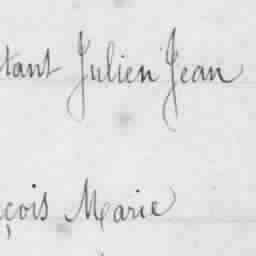 tant Julien Jean
çois Marie